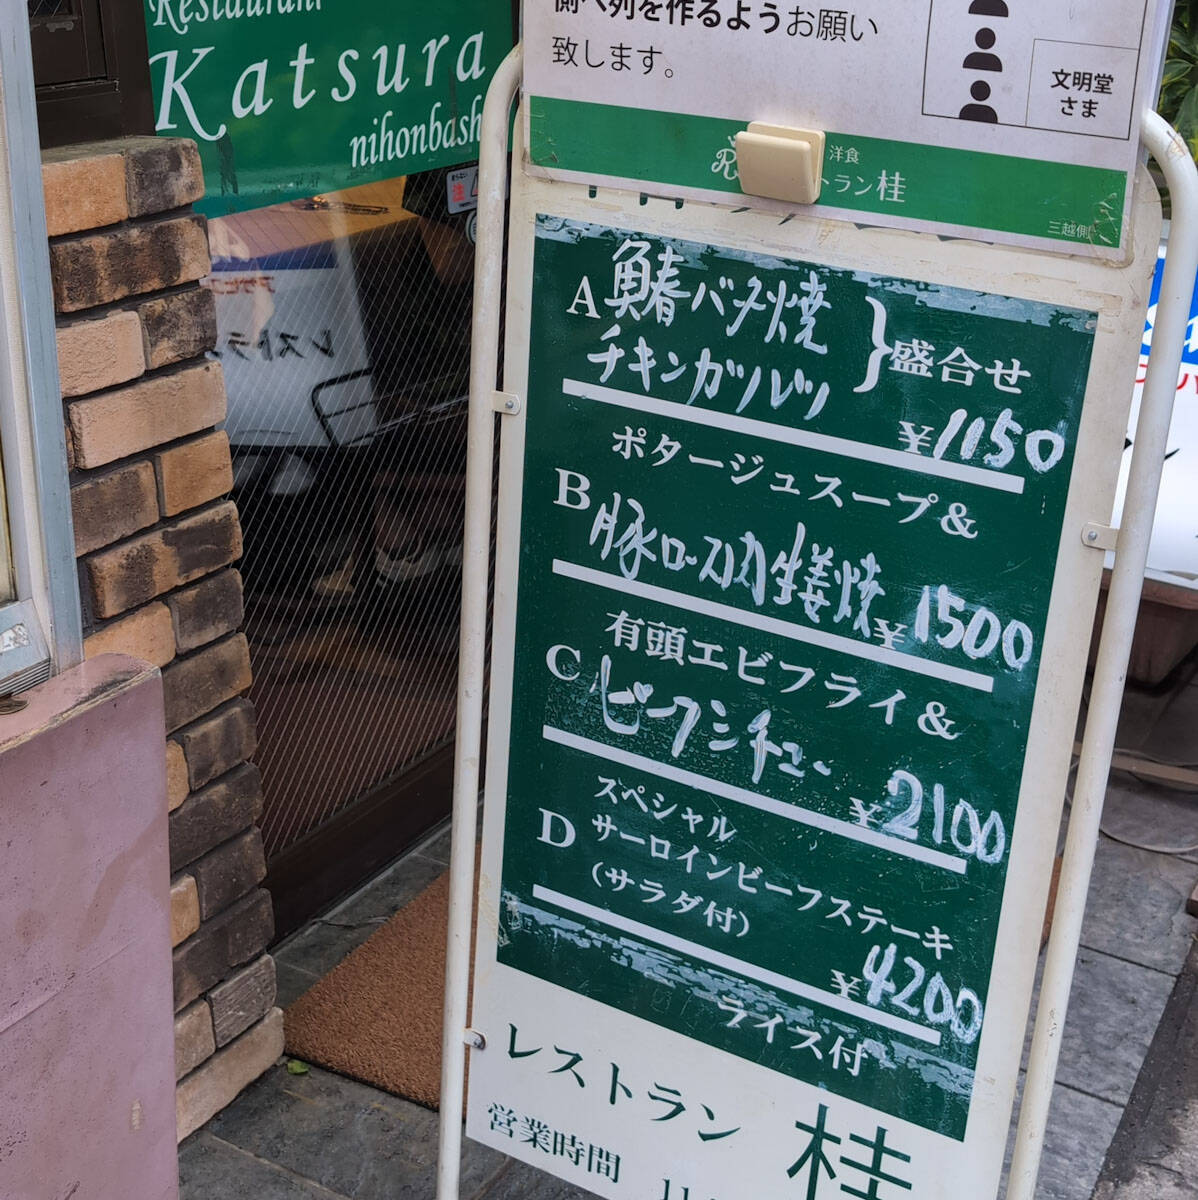 Restaurant
Katsura
nihonbash
側へ列を作るようお願い
致します。
文明堂
さま
洋食
トラン桂
三越側
A 鰆バタ焼
チキンカツレツ
盛合せ
¥1150
ポタージュスープ&
B 豚ロース肉生姜焼
¥1500
有頭エビフライ&
C ビーフシチュー
¥2100
スペシャル
D サーロインビーフステーキ
(サラダ付)
¥4200
ライス付
レストラン 桂
営業時間 11